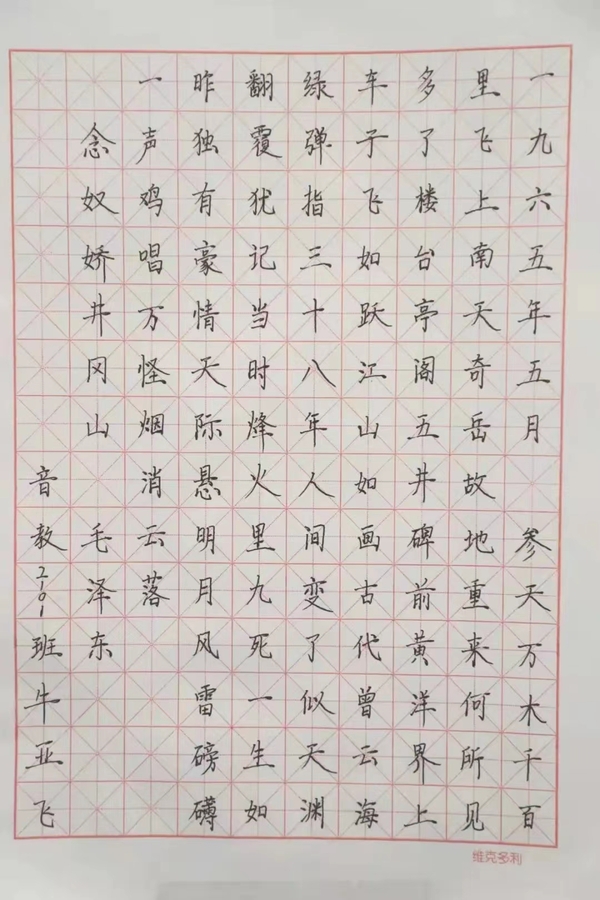 一九六五年五月 参天万木千百
里飞上南天奇岳故地重来何所见
多了楼台亭阁五井碑前黄洋界上
车子飞如跃江山如画古代曾云海
绿弹指三十八年人间变了似天渊
翻覆犹记当时烽火里九死一生如
昨独有豪情天际悬明月风雷磅礴
一声鸡唱万怪烟消云落
念奴娇井冈山 毛泽东
音教2101班牛亚飞
维克多利